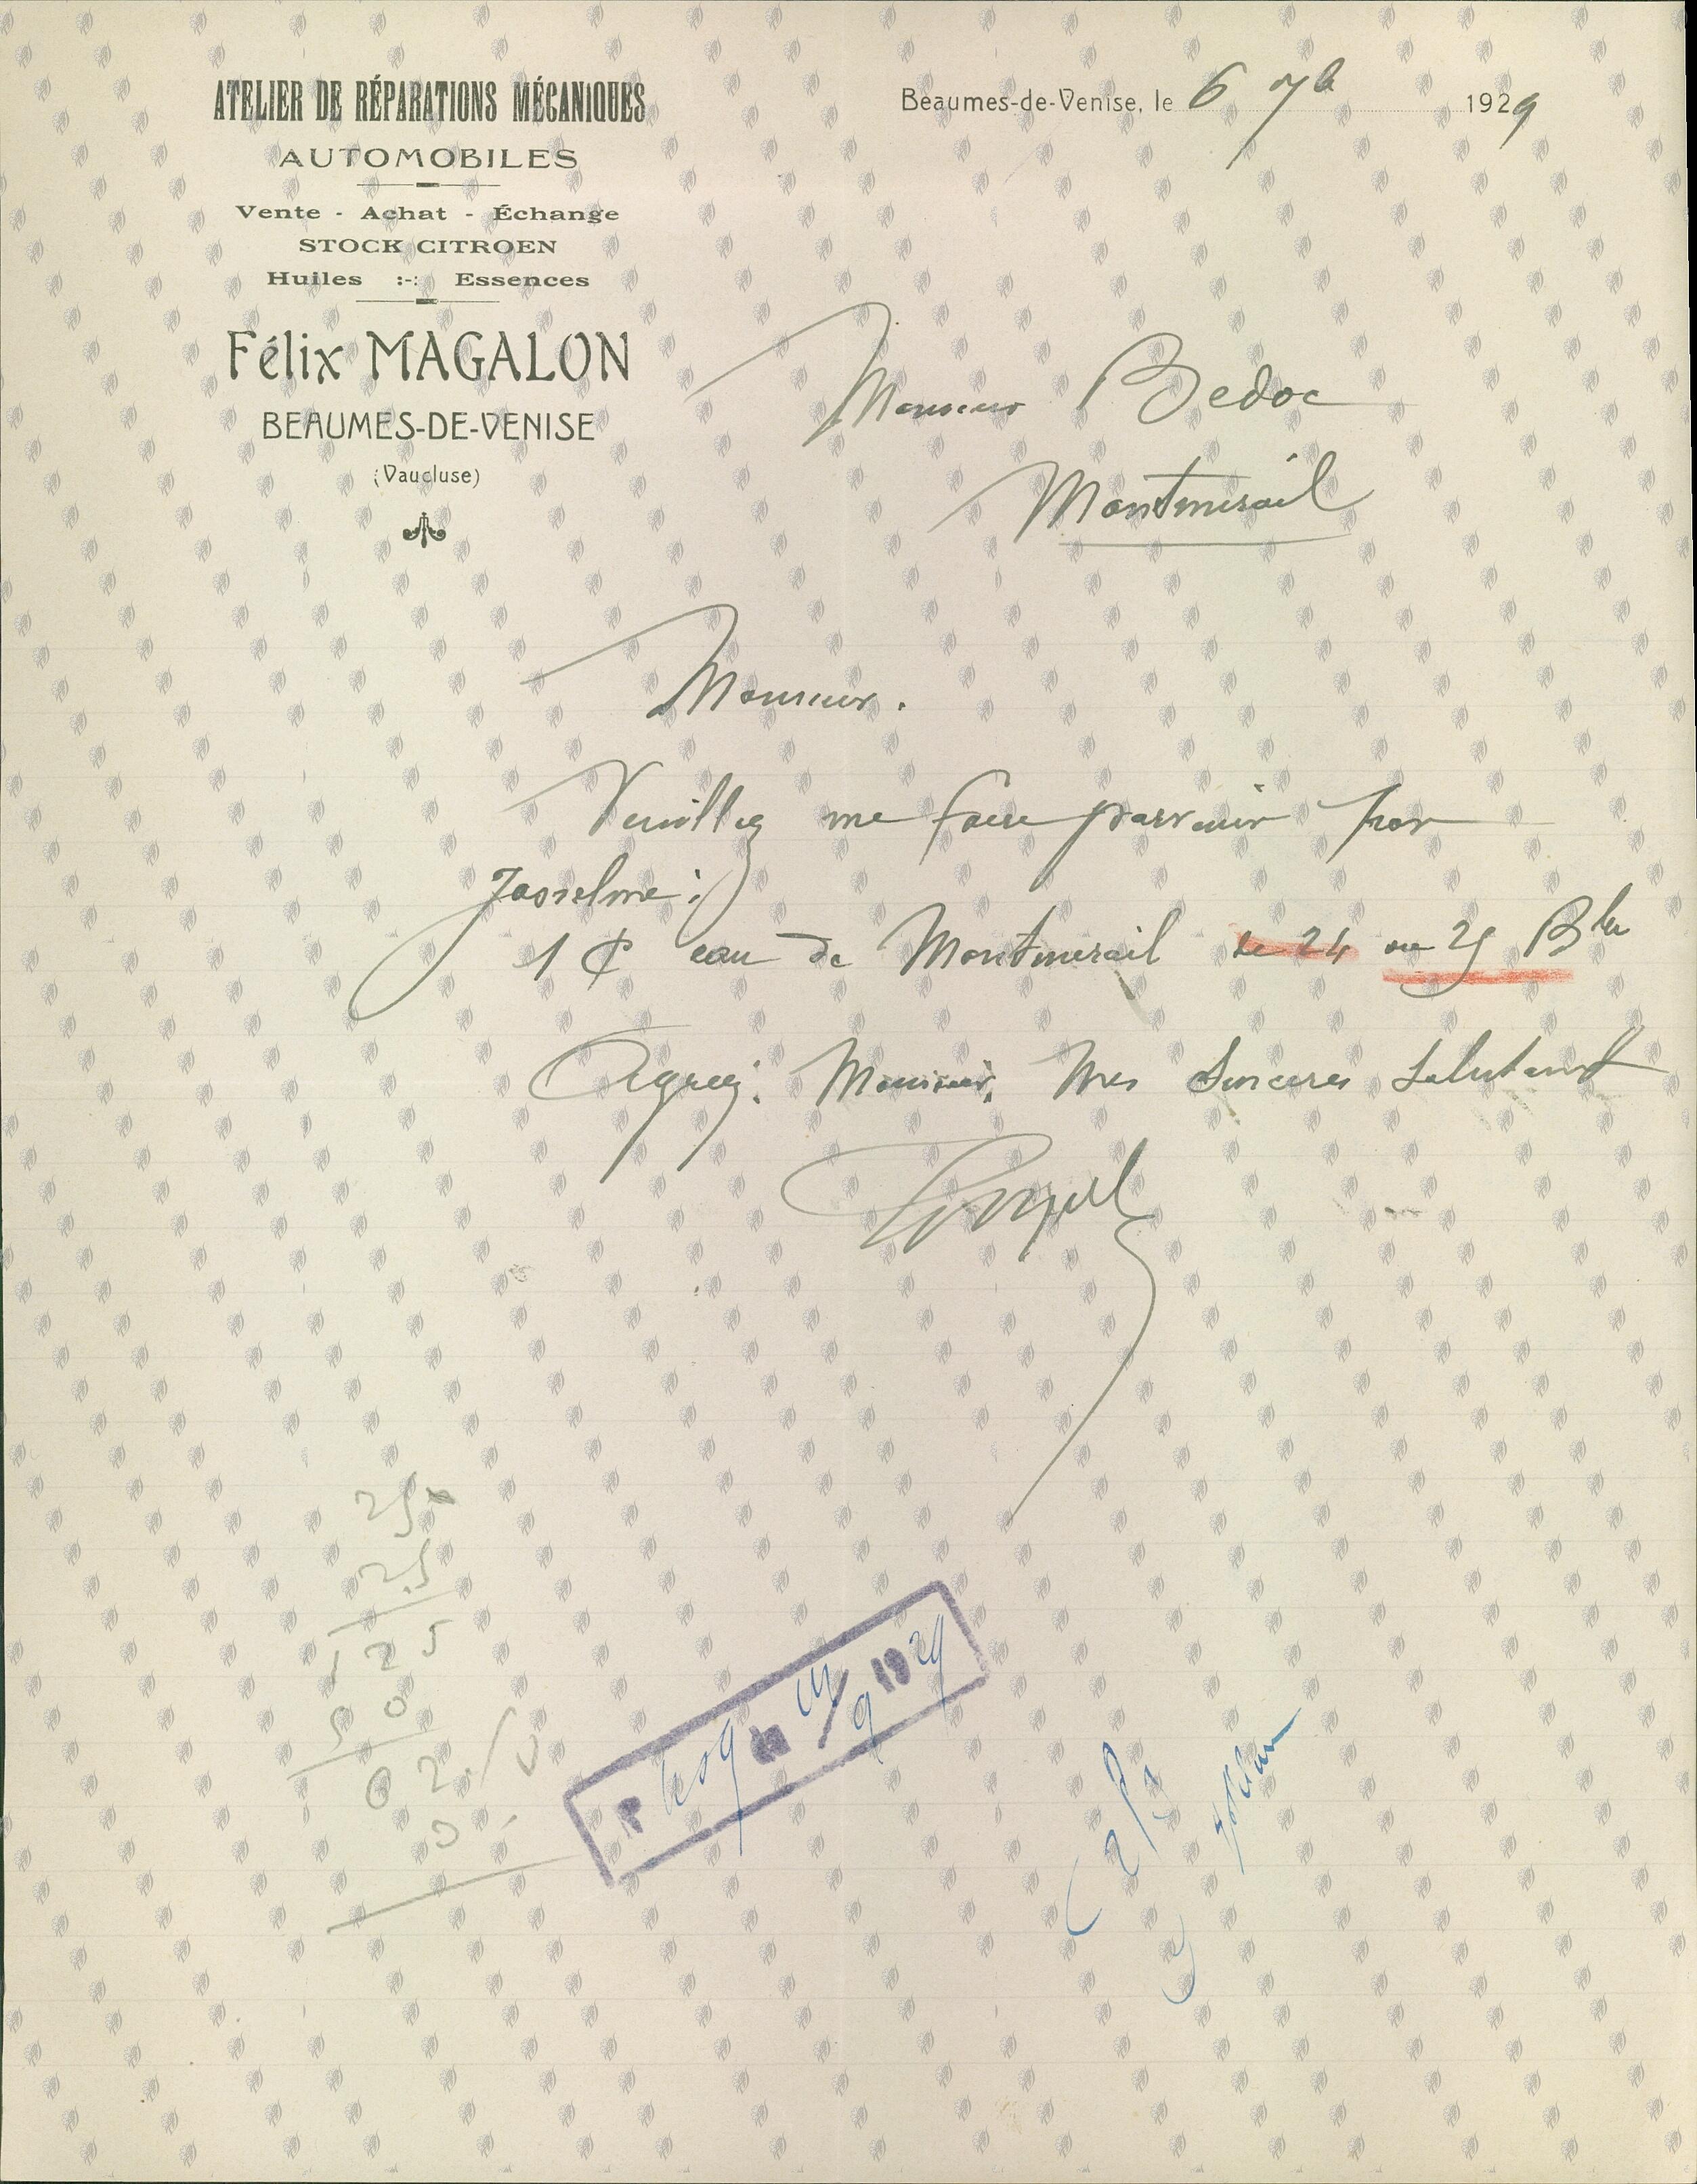 ATELIER DE RÉPARATIONS MÉCANIQUES
AUTOMOBILES
Vente - Achat - Échange
STOCK CITROEN
Huiles :-: Essences
Félix MAGALON
BEAUMES-DE-VENISE
(Vaucluse)
Beaumes-de-Venise, le 6 7b 1929
Monsieur Bedoc
Montmirail
Monsieur.
Veuillez me faire parvenir par
Josselme :
1 ₵ eau de Montmirail de 24 ou 25 Bles
Agreez. Monsieur, Mes Sinceres Salutant
25
25
125
50
R le 9 1929